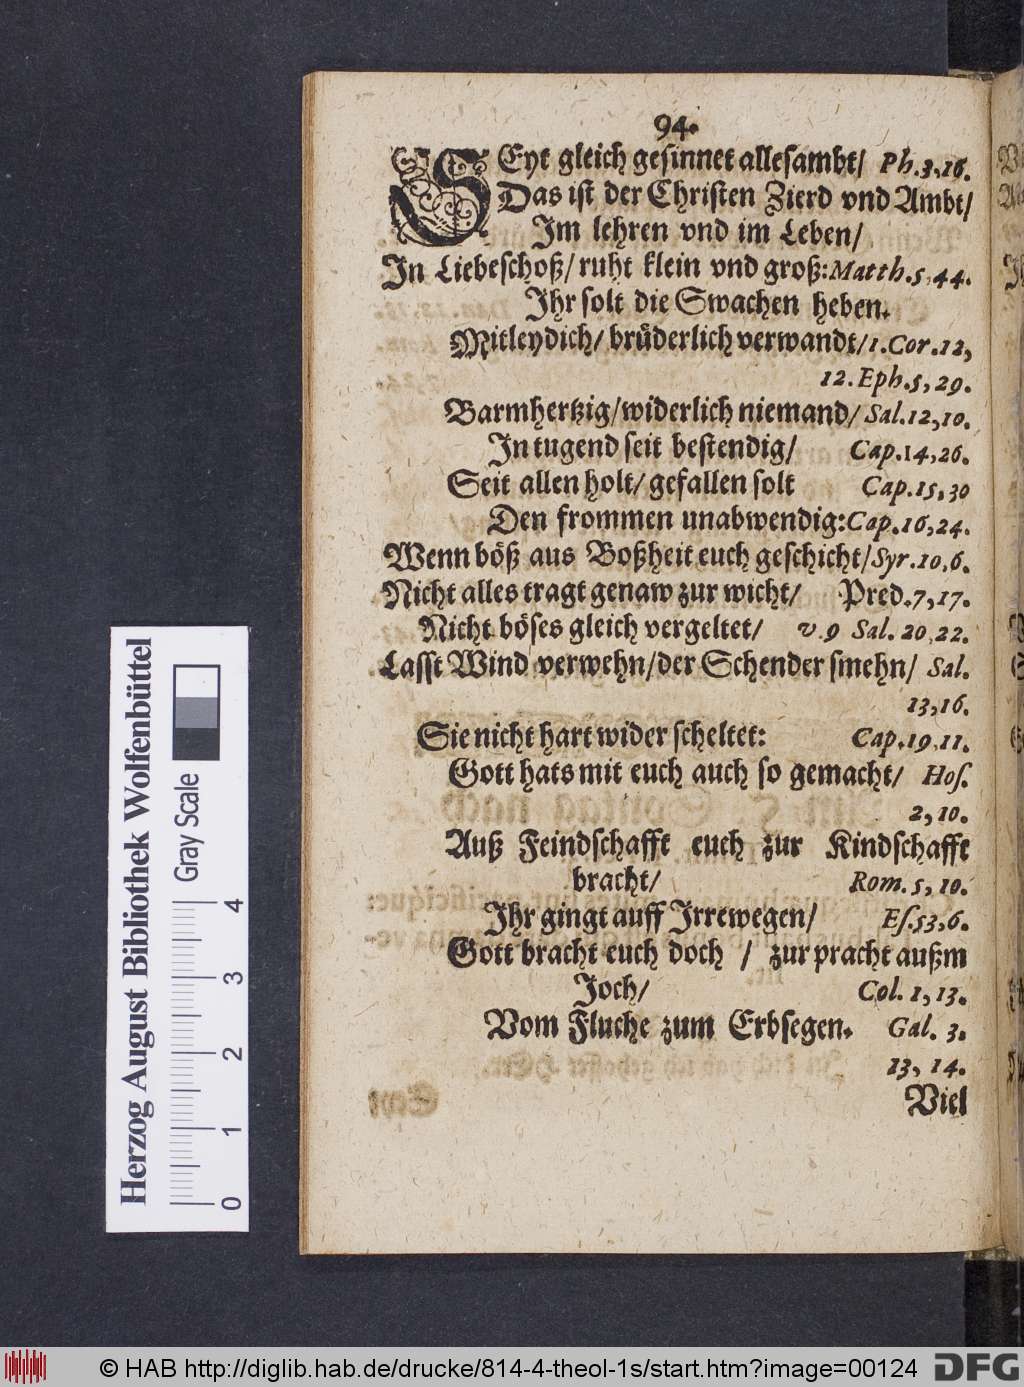 94.
SEyt gleich gesinnet allesambt/ Ph.3,16.
Das ist der Christen Zierd vnd Ambt/
Im lehren vnd im Leben/
In Liebeschoß/ ruht klein vnd groß: Matth.5,44.
Ihr solt die Swachen heben.
Mitleydich/ brüderlich verwandt/ 1.Cor.12,
12. Eph.5,29.
Barmhertzig/ widerlich niemand/ Sal.12,10.
In tugend seit bestendig/ Cap.14,26.
Seit allen holt/ gefallen solt Cap.15,30
Den frommen unabwendig: Cap.16,24.
Wenn böß aus Boßheit euch geschicht/ Syr.10,6.
Nicht alles tragt genaw zur wicht/ Pred.7,17.
Nicht böses gleich vergeltet/ v.9 Sal. 20,22.
Lasst Wind verwehn/ der Schender smehn/ Sal.
13,16.
Sie nicht hart wider scheltet: Cap.19,11.
Gott hats mit euch auch so gemacht/ Hos.
2,10.
Auß Feindschafft euch zur Kindschafft
bracht/ Rom.5,10.
Ihr gingt auff Irrewegen/ Es.53,6.
Gott bracht euch doch / zur pracht außm
Joch/ Col. 1,13.
Vom Fluche zum Erbsegen. Gal. 3.
13, 14.
Viel
Herzog August Bibliothek Wolfenbüttel
Gray Scale
0 1 2 3 4
© HAB http://diglib.hab.de/drucke/814-4-theol-1s/start.htm?image=00124
DFG